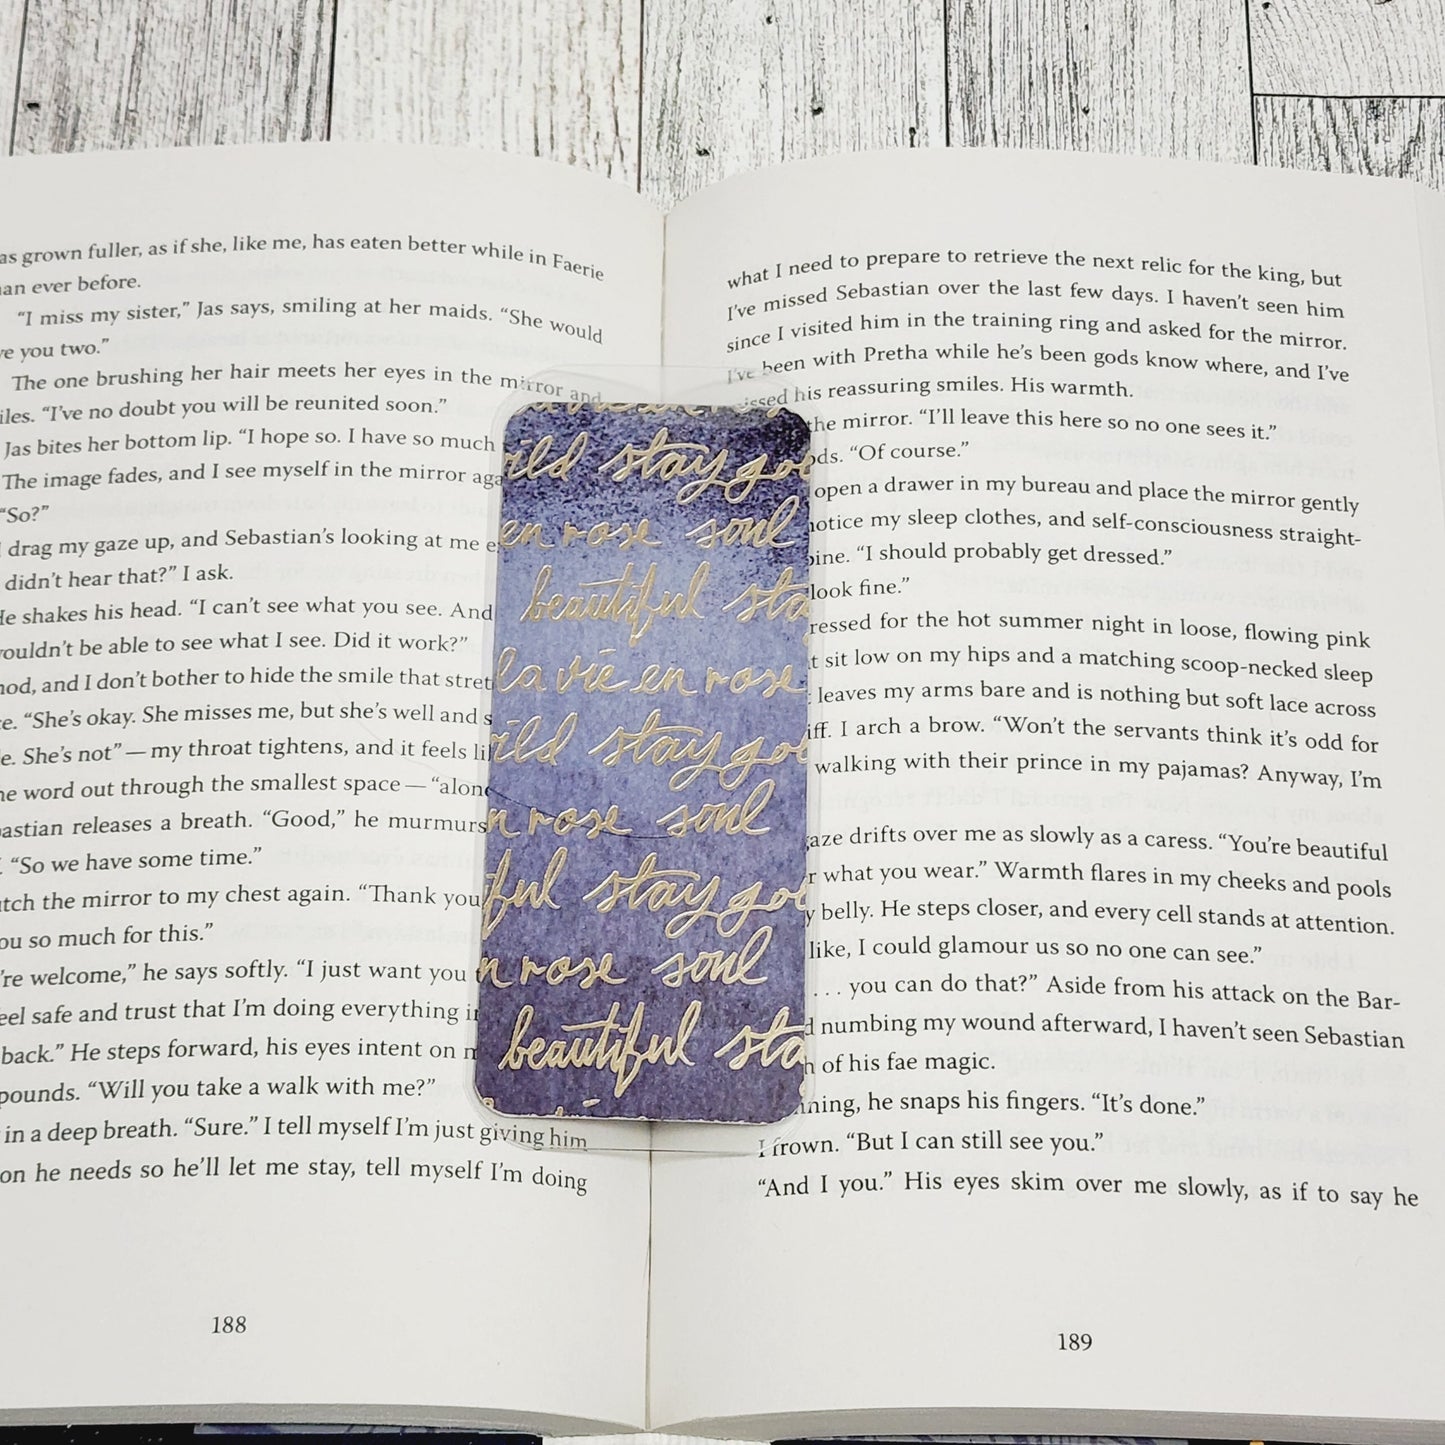 as grown fuller, as if she, like me, has eaten better while in Faerie
an ever before.
“I miss my sister,” Jas says, smiling at her maids. “She would
ve you two.”
The one brushing her hair meets her eyes in the mirror and
iles. “I’ve no doubt you will be reunited soon.”
Jas bites her bottom lip. “I hope so. I have so much
The image fades, and I see myself in the mirror aga
“So?”
drag my gaze up, and Sebastian’s looking at me e
didn’t hear that?” I ask.
He shakes his head. “I can’t see what you see. And
ouldn’t be able to see what I see. Did it work?”
nod, and I don’t bother to hide the smile that stret
ce. “She’s okay. She misses me, but she’s well and s
e. She’s not” — my throat tightens, and it feels lik
he word out through the smallest space — “alone
bastian releases a breath. “Good,” he murmurs
“So we have some time.”
utch the mirror to my chest again. “Thank you
ou so much for this.”
’re welcome,” he says softly. “I just want you t
eel safe and trust that I’m doing everything in
back.” He steps forward, his eyes intent on m
pounds. “Will you take a walk with me?”
in a deep breath. “Sure.” I tell myself I’m just giving him
on he needs so he’ll let me stay, tell myself I’m doing
188
ild stay go
en rose soul
beautiful sta
la vie en rose
ild stay go
n rose soul
ful stay go
n rose soul
beautiful sta
what I need to prepare to retrieve the next relic for the king, but
I’ve missed Sebastian over the last few days. I haven’t seen him
since I visited him in the training ring and asked for the mirror.
I’ve been with Pretha while he’s been gods know where, and I’ve
issed his reassuring smiles. His warmth.
the mirror. “I’ll leave this here so no one sees it.”
ods. “Of course.”
open a drawer in my bureau and place the mirror gently
notice my sleep clothes, and self-consciousness straight-
pine. “I should probably get dressed.”
look fine.”
ressed for the hot summer night in loose, flowing pink
t sit low on my hips and a matching scoop-necked sleep
leaves my arms bare and is nothing but soft lace across
iff. I arch a brow. “Won’t the servants think it’s odd for
walking with their prince in my pajamas? Anyway, I’m
gaze drifts over me as slowly as a caress. “You’re beautiful
r what you wear.” Warmth flares in my cheeks and pools
y belly. He steps closer, and every cell stands at attention.
like, I could glamour us so no one can see.”
. . . you can do that?” Aside from his attack on the Bar-
d numbing my wound afterward, I haven’t seen Sebastian
h of his fae magic.
nning, he snaps his fingers. “It’s done.”
I frown. “But I can still see you.”
“And I you.” His eyes skim over me slowly, as if to say he
189